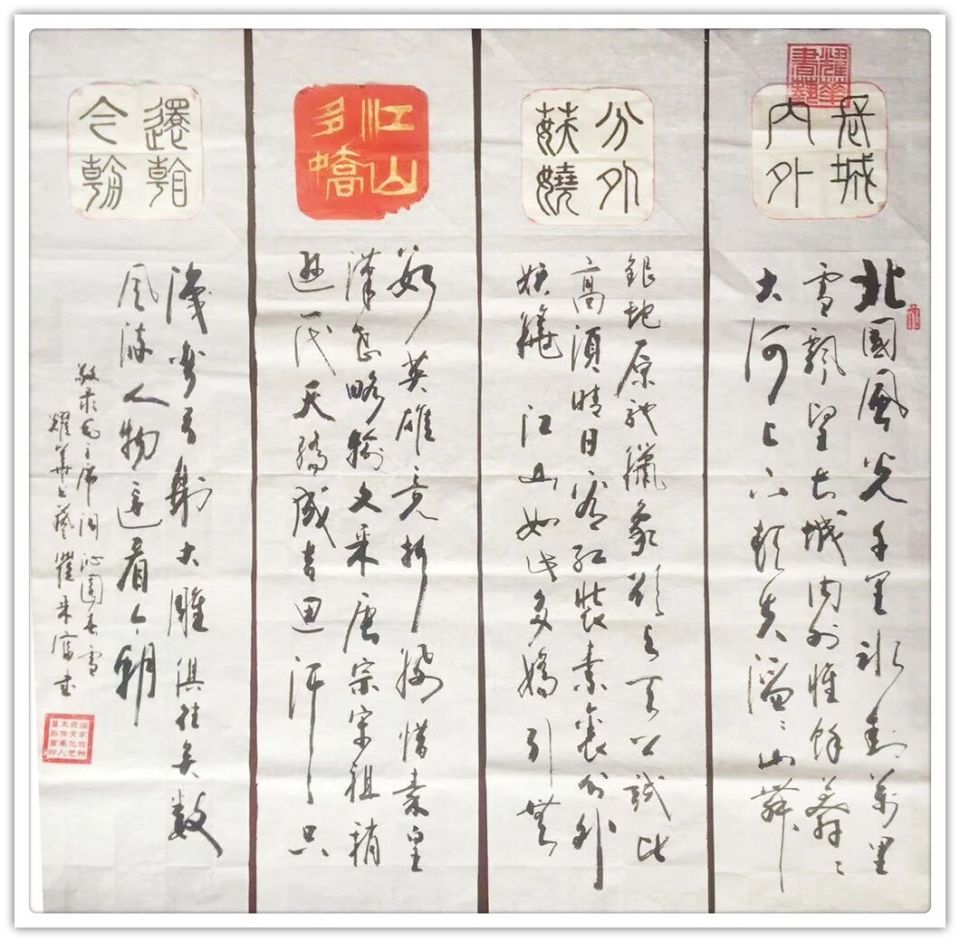 耀華書藝
長城
內外
北國風光千里冰封萬里
雪飄望長城內外惟餘莽〻
大河上下頓失滔〻山舞
分外
妖嬈
銀蛇原馳蠟象欲與天公試比
高須晴日看紅裝素裹分外
妖嬈江山如此多嬌引無
江山
多嬌
數英雄競折腰惜秦皇
漢武略輸文采唐宗宋祖稍
遜一代天驕成吉思汗只
還看
今朝
識彎弓射大雕俱往矣數
風流人物還看今朝
敬录毛主席词沁園春雪
耀華书藝瞿来富书